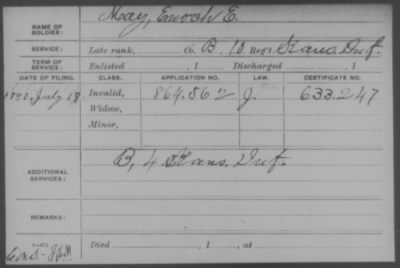 NAME OF SOLDIER: May, Enoch E.
SERVICE: Late rank, Co. B, 10 Reg't Kans. Inf.
TERM OF SERVICE: Enlisted , 1 Discharged , 1
DATE OF FILING. CLASS. APPLICATION NO. LAW. CERTIFICATE NO.
1890. July 18 Invalid, 864.562 J. 633.247
Widow,
Minor,
ADDITIONAL SERVICES: B, 4 Kans. Inf.
REMARKS:
Died , 1 , at